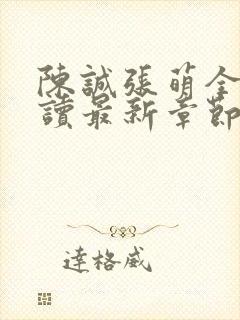 陳誠張萌全
讀最新章節
達格威